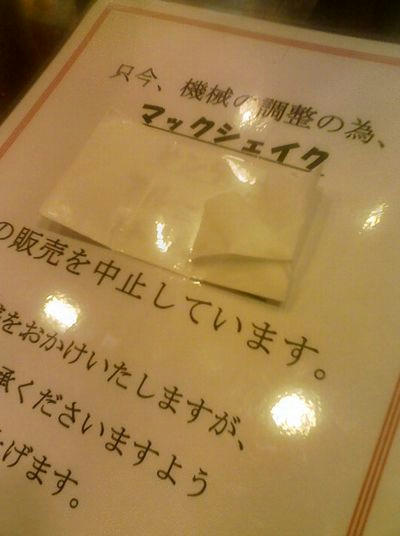 只今、機械の調整の為、
マックシェイク
の販売を中止しています。
をおかけいたしますが、
承くださいますよう
げます。